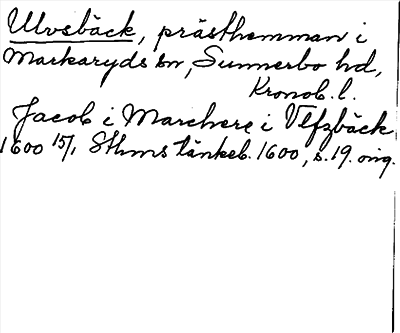 Ulvsbäck, prästhemman i
Markaryds sn, Sunnerbo hd,
Kronob. l.
Jacob i Marchere i Vlfzbäck
1600 15/1 Sthms tänkeb. 1600, s. 19. orig.